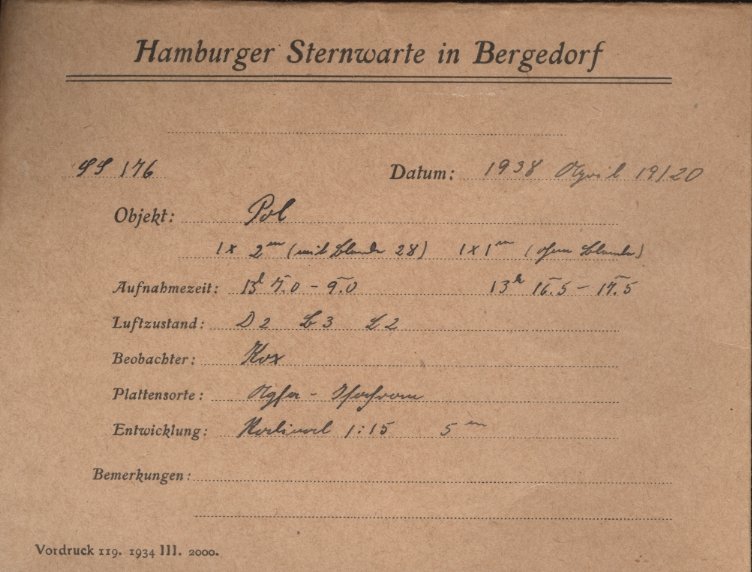 Hamburger Sternwarte in Bergedorf
SS 176 Datum: 1938 April 19/20
Objekt: Pol
1x 2m (mit Blende 28) 1x1m (ohne Blende)
Aufnahmezeit: 13h 7.0 - 9.0 13h 16.5 - 17.5
Luftzustand: D2 B3 L2
Beobachter: Kox
Plattensorte: Agfa - Isochrom
Entwicklung: Rodinal 1:15 5m
Bemerkungen:
Vordruck 119. 1934 III. 2000.